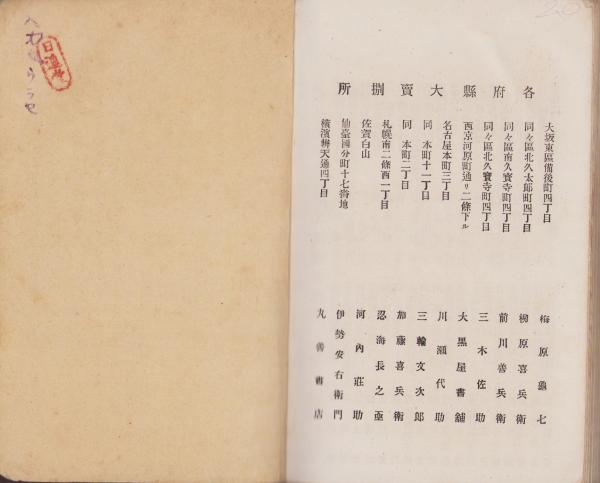 各府縣大賣捌所
大坂東區備後町四丁目
梅原龜七
同々區北久太郎町四丁目
柳原喜兵衛
同々區南久寶寺町四丁目
前川善兵衛
同々區北久寶寺町四丁目
三木佐助
西京河原町通リ二條下ル
大黒屋書舖
名古屋本町三丁目
川瀬代助
同 本町十一丁目
三輪文次郎
同 本町二丁目
加藤喜兵衛
札幌南二條西一丁目
忍海長之亟
佐賀白山
河內莊助
仙臺國分町十七番地
伊勢安右衛門
橫濱辨天通四丁目
丸善書店